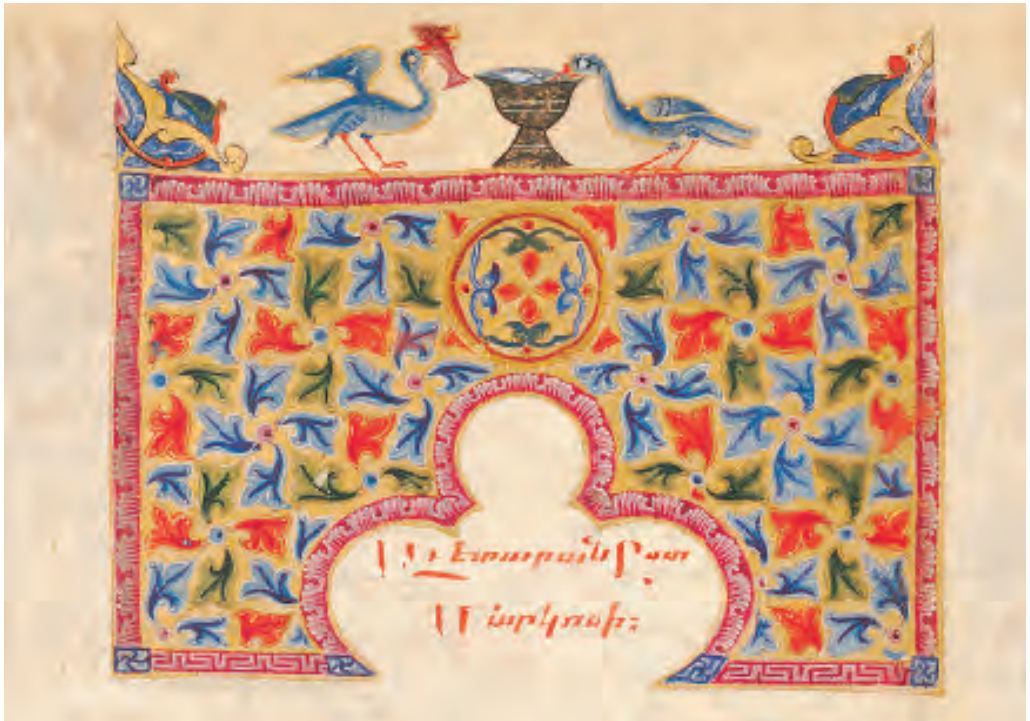 Աւետարան ըստ
Մարկոսի։